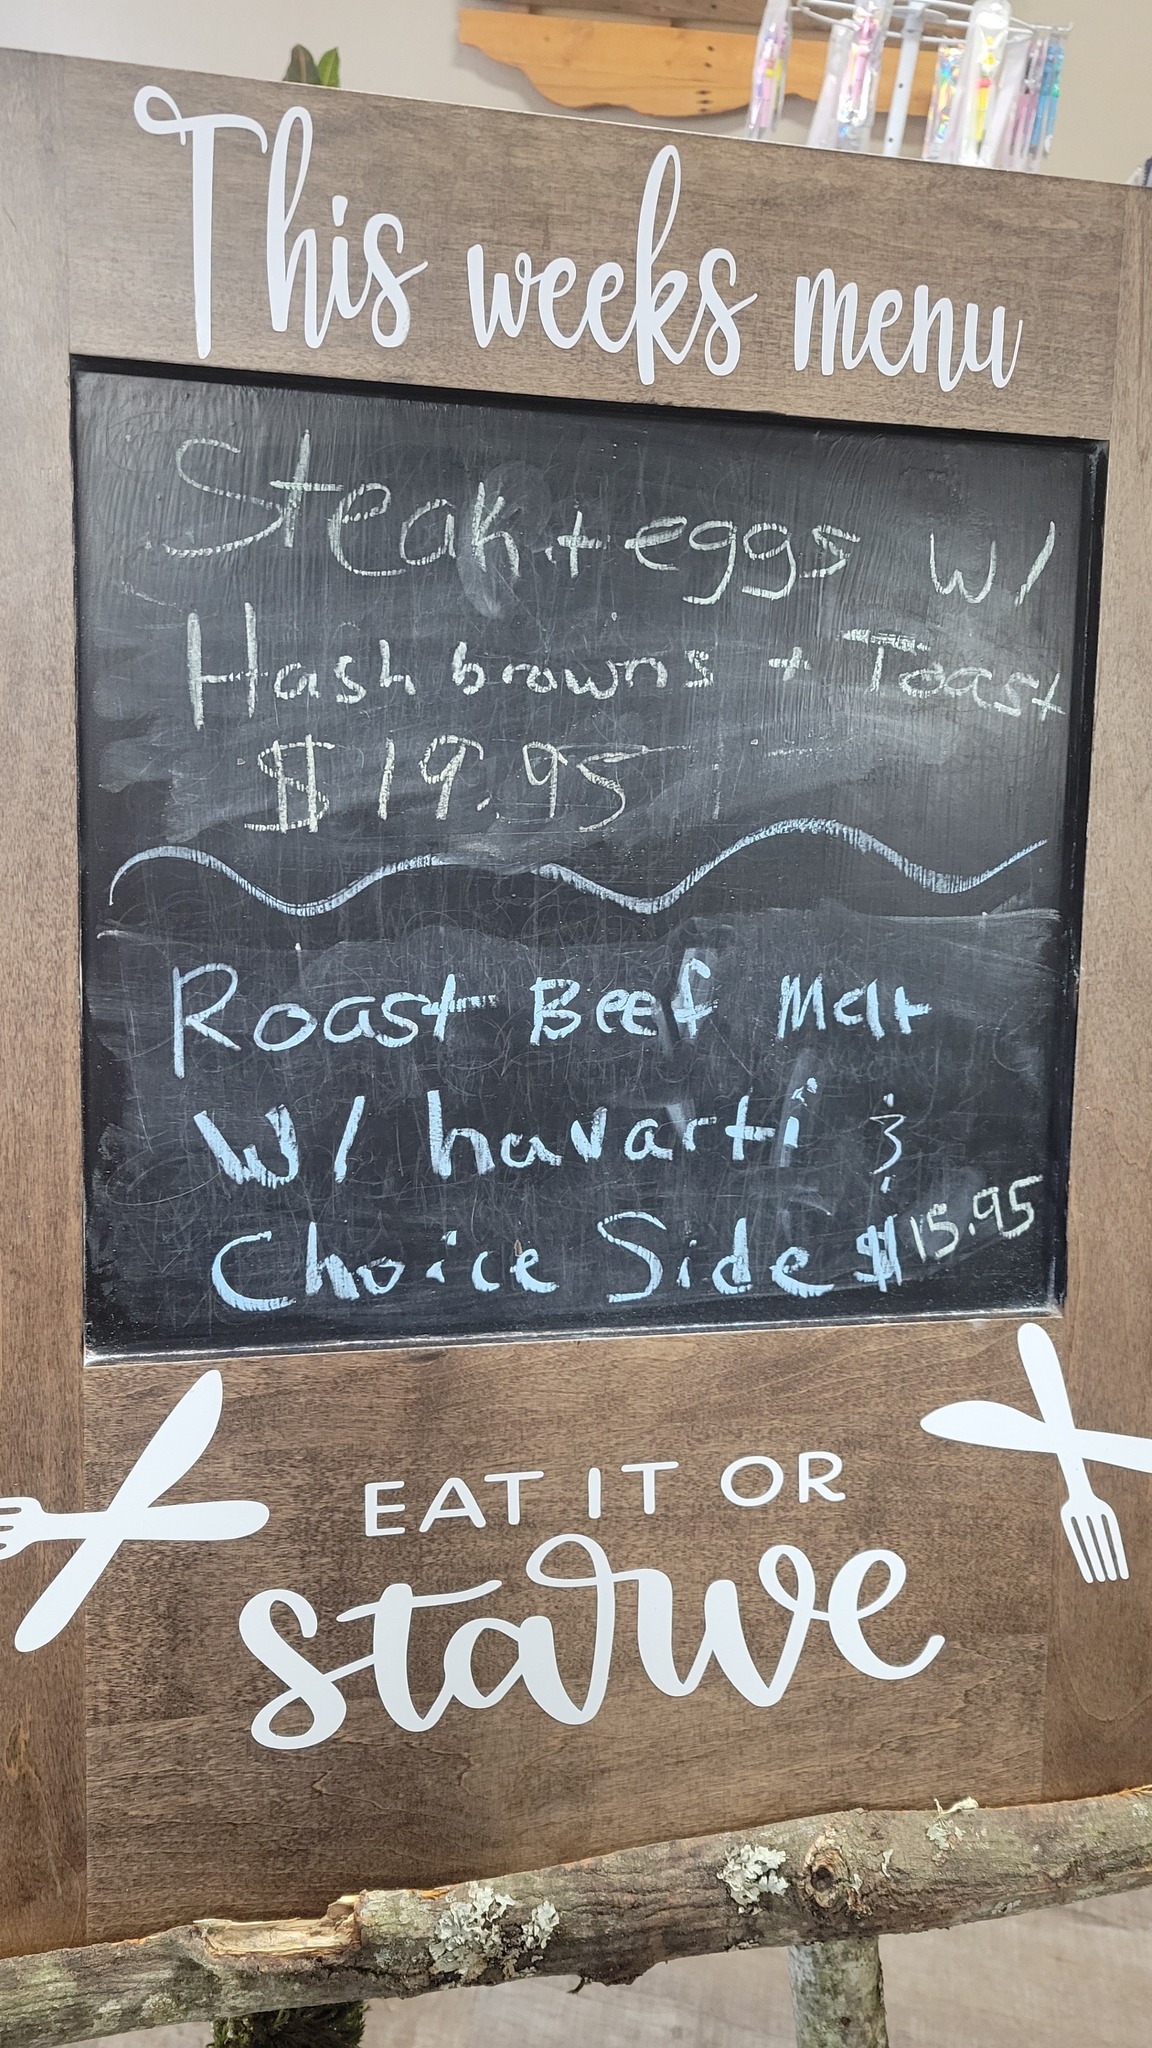 This weeks menu
Steak + eggs w/
Hash browns + Toast
$19.95
Roast Beef Melt
W/ havarti &
Choice Side $15.95
EAT IT OR
starve